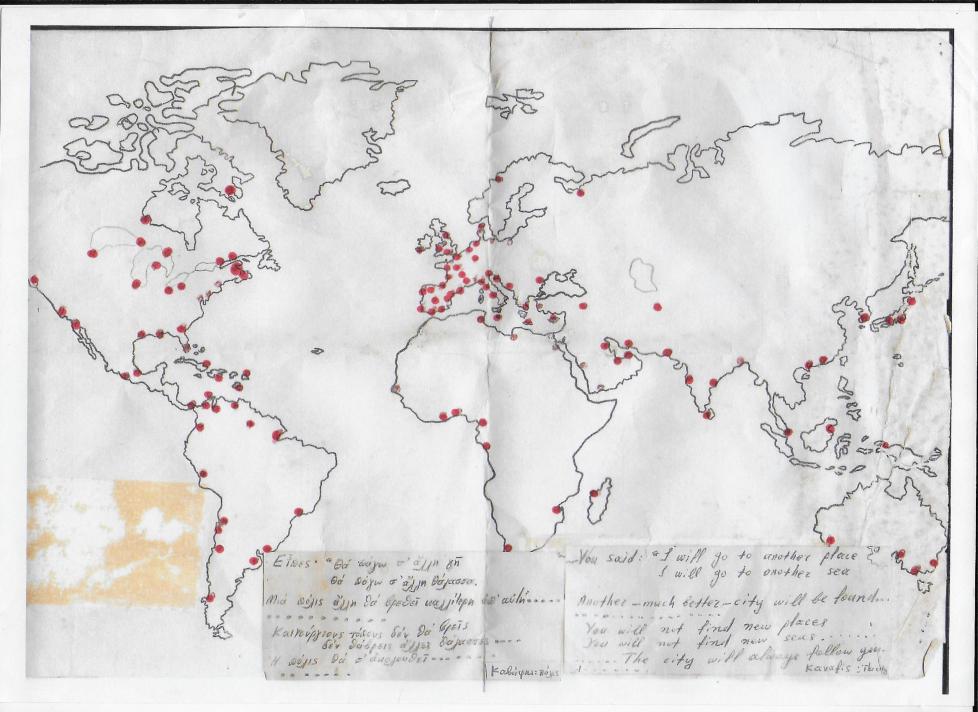 Εἶπες· "Θά πάγω σ' ἄλλη γῆ
θά πάγω σ' ἄλλη θάλασσα.
Μιά πόλις ἄλλη θά βρεθεῖ καλλίτερη ἀπ' αὐτή......
Καινούργιους τόπους δέν θά βρεῖς
δέν θάβρεις ἄλλες θάλασσες....
Η πόλις θά σ' ἀκολουθεῖ........
Καβάφης: Πόλις
You said: "I will go to another place
I will go to another sea
Another-much better-city will be found...
You will not find new places
You will not find new seas.......
...... The city will always follow you.
Kavafis: